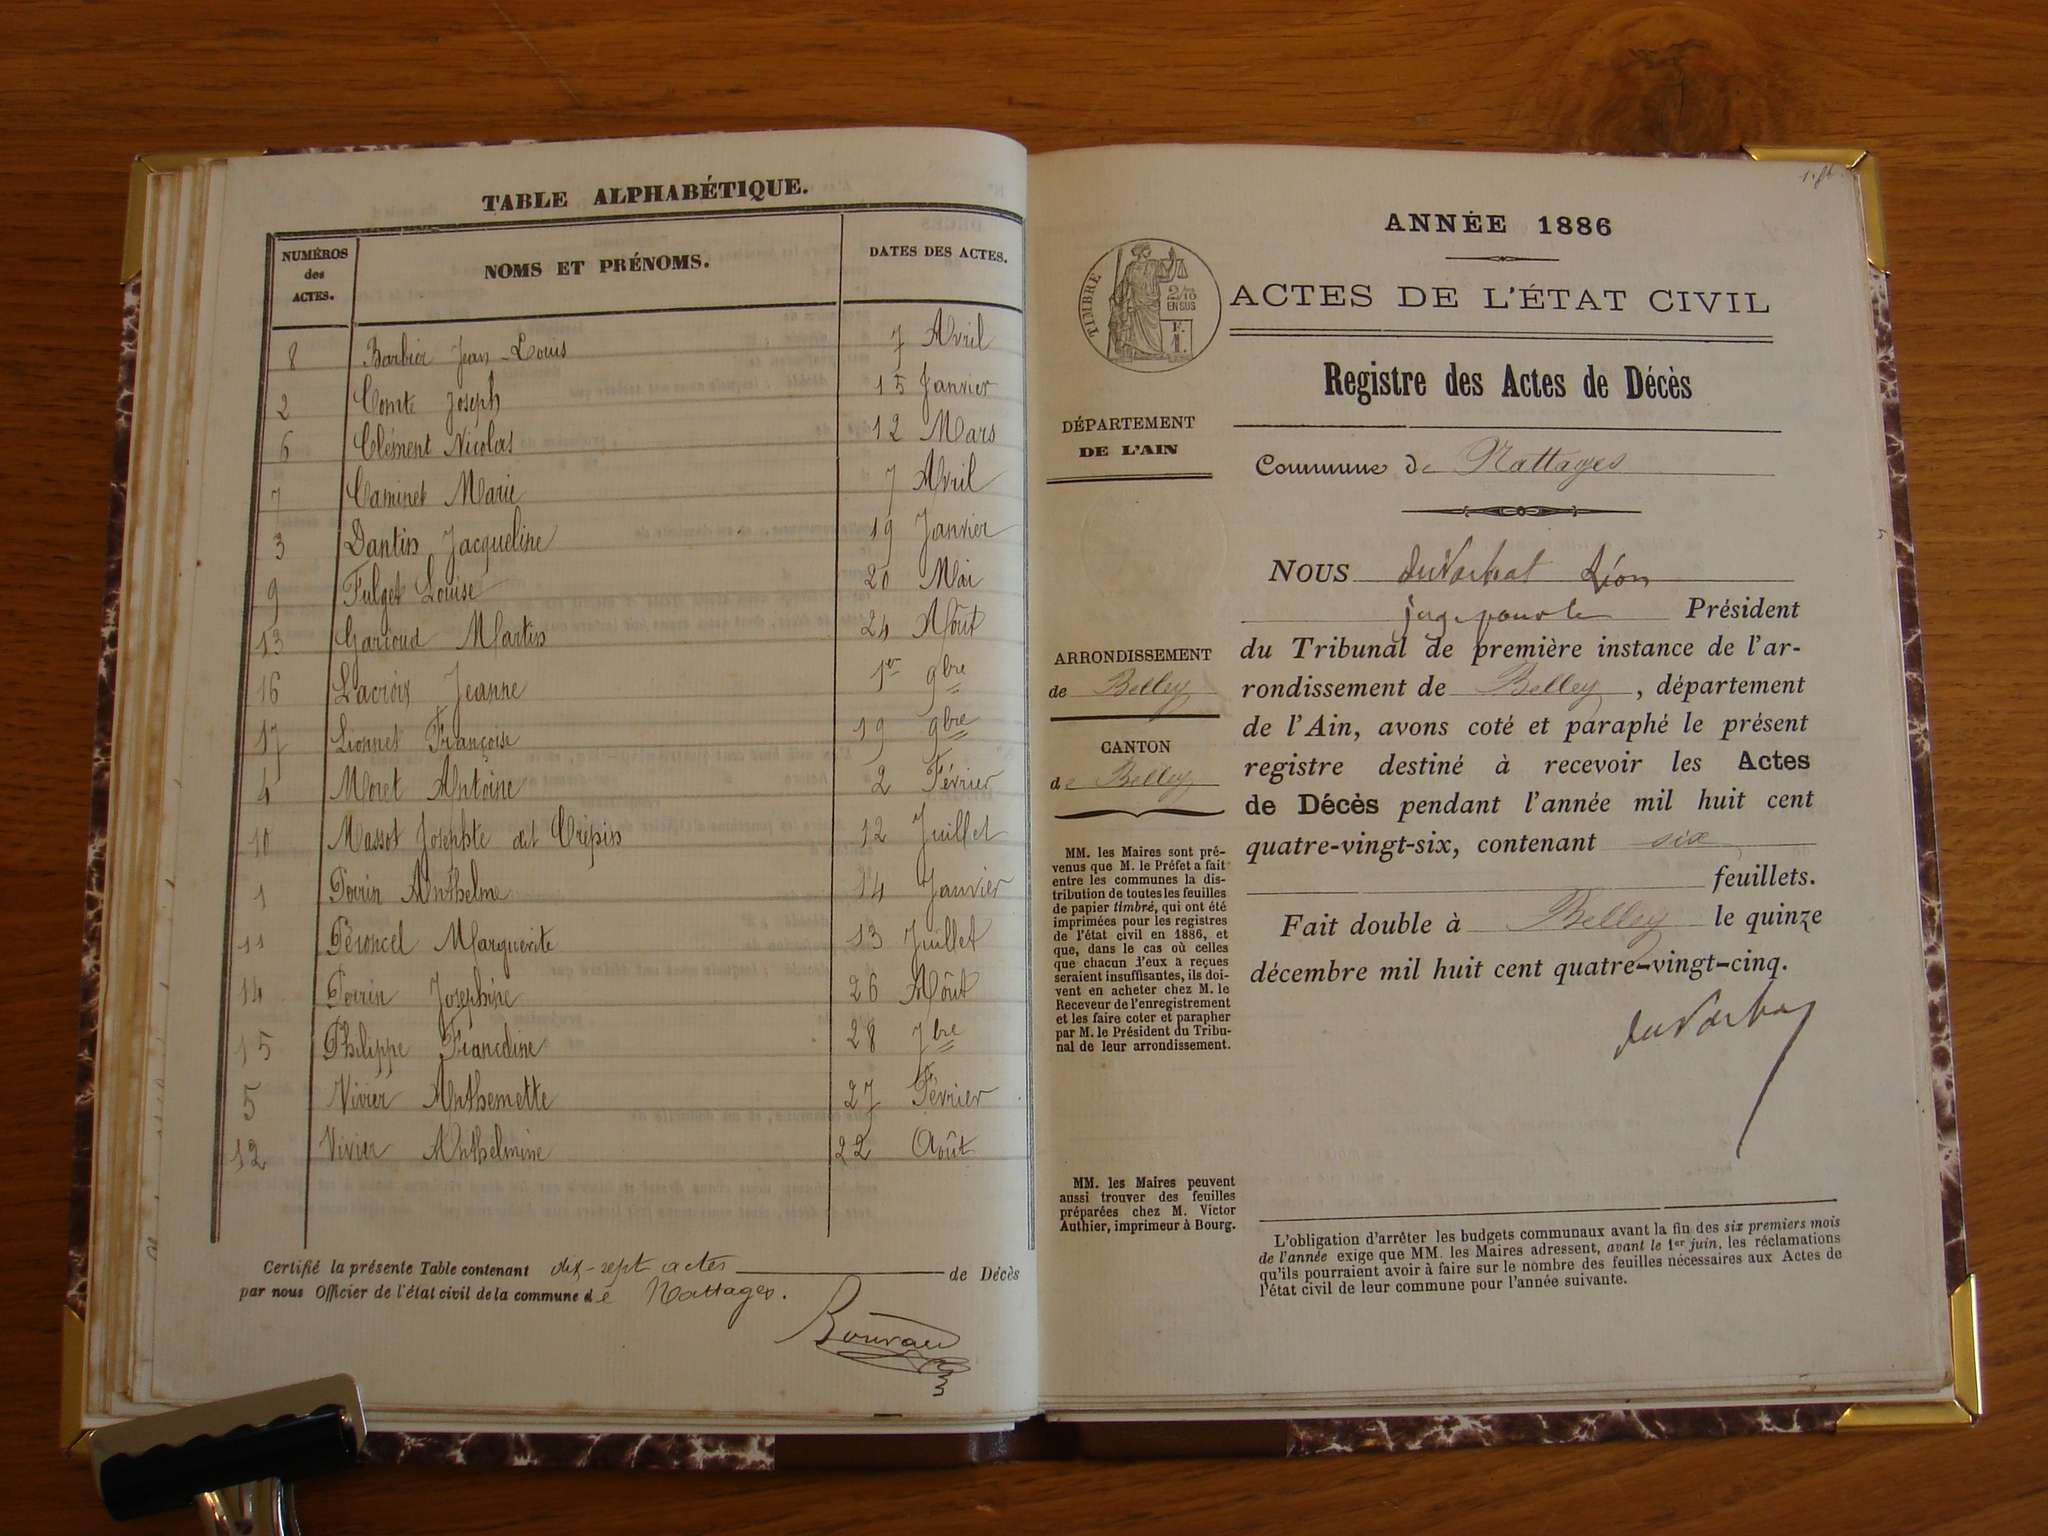 TABLE ALPHABÉTIQUE.
NUMÉROS des ACTES. NOMS ET PRÉNOMS. DATES DES ACTES.
8 Barbier Jean-Louis 7 Avril
2 Comte Joseph 15 Janvier
6 Clément Nicolas 12 Mars
7 Caminet Marie 7 Avril
3 Dantin Jacqueline 19 Janvier
9 Fulget Louise 20 Mai
13 Garioud Martin 24 Août
16 Lacroix Jeanne 1er 9bre
17 Lionnet Françoise 19 9bre
4 Moret Antoine 2 Février
10 Massot Josephte dit Crépin 12 Juillet
1 Perrin Anthelme 14 Janvier
11 Péroncel Marguerite 13 Juillet
14 Perrin Josephine 26 Août
15 Philippe Francoline 28 7bre
5 Vivier Anthemette 27 Février
12 Vivier Anthelmine 22 Août
Certifié la présente Table contenant dix-sept actes de Décès
par nous Officier de l'état civil de la commune de Nattages.
ANNÉE 1886
TIMBRE
2/10
EN SUS
ACTES DE L'ÉTAT CIVIL
Registre des Actes de Décès
DÉPARTEMENT
DE L'AIN
Commune de Nattages
NOUS Léon
juge pour le Président
du Tribunal de première instance de l'ar-
rondissement de Belley, département
de l'Ain, avons coté et paraphé le présent
registre destiné à recevoir les Actes
de Décès pendant l'année mil huit cent
quatre-vingt-six, contenant six
feuillets.
Fait double à Belley le quinze
décembre mil huit cent quatre-vingt-cinq.
ARRONDISSEMENT
de Belley
CANTON
de Belley
MM. les Maires sont pré-
venus que M. le Préfet a fait
entre les communes la dis-
tribution de toutes les feuilles
de papier timbré, qui ont été
imprimées pour les registres
de l'état civil en 1886, et
que, dans le cas où celles
que chacun d'eux a reçues
seraient insuffisantes, ils doi-
vent en acheter chez M. le
Receveur de l'enregistrement
et les faire coter et parapher
par M. le Président du Tribu-
nal de leur arrondissement.
MM. les Maires peuvent
aussi trouver des feuilles
préparées chez M. Victor
Authier, imprimeur à Bourg.
L'obligation d'arrêter les budgets communaux avant la fin des six premiers mois
de l'année exige que MM. les Maires adressent, avant le 1er juin, les réclamations
qu'ils pourraient avoir à faire sur le nombre des feuilles nécessaires aux Actes de
l'état civil de leur commune pour l'année suivante.